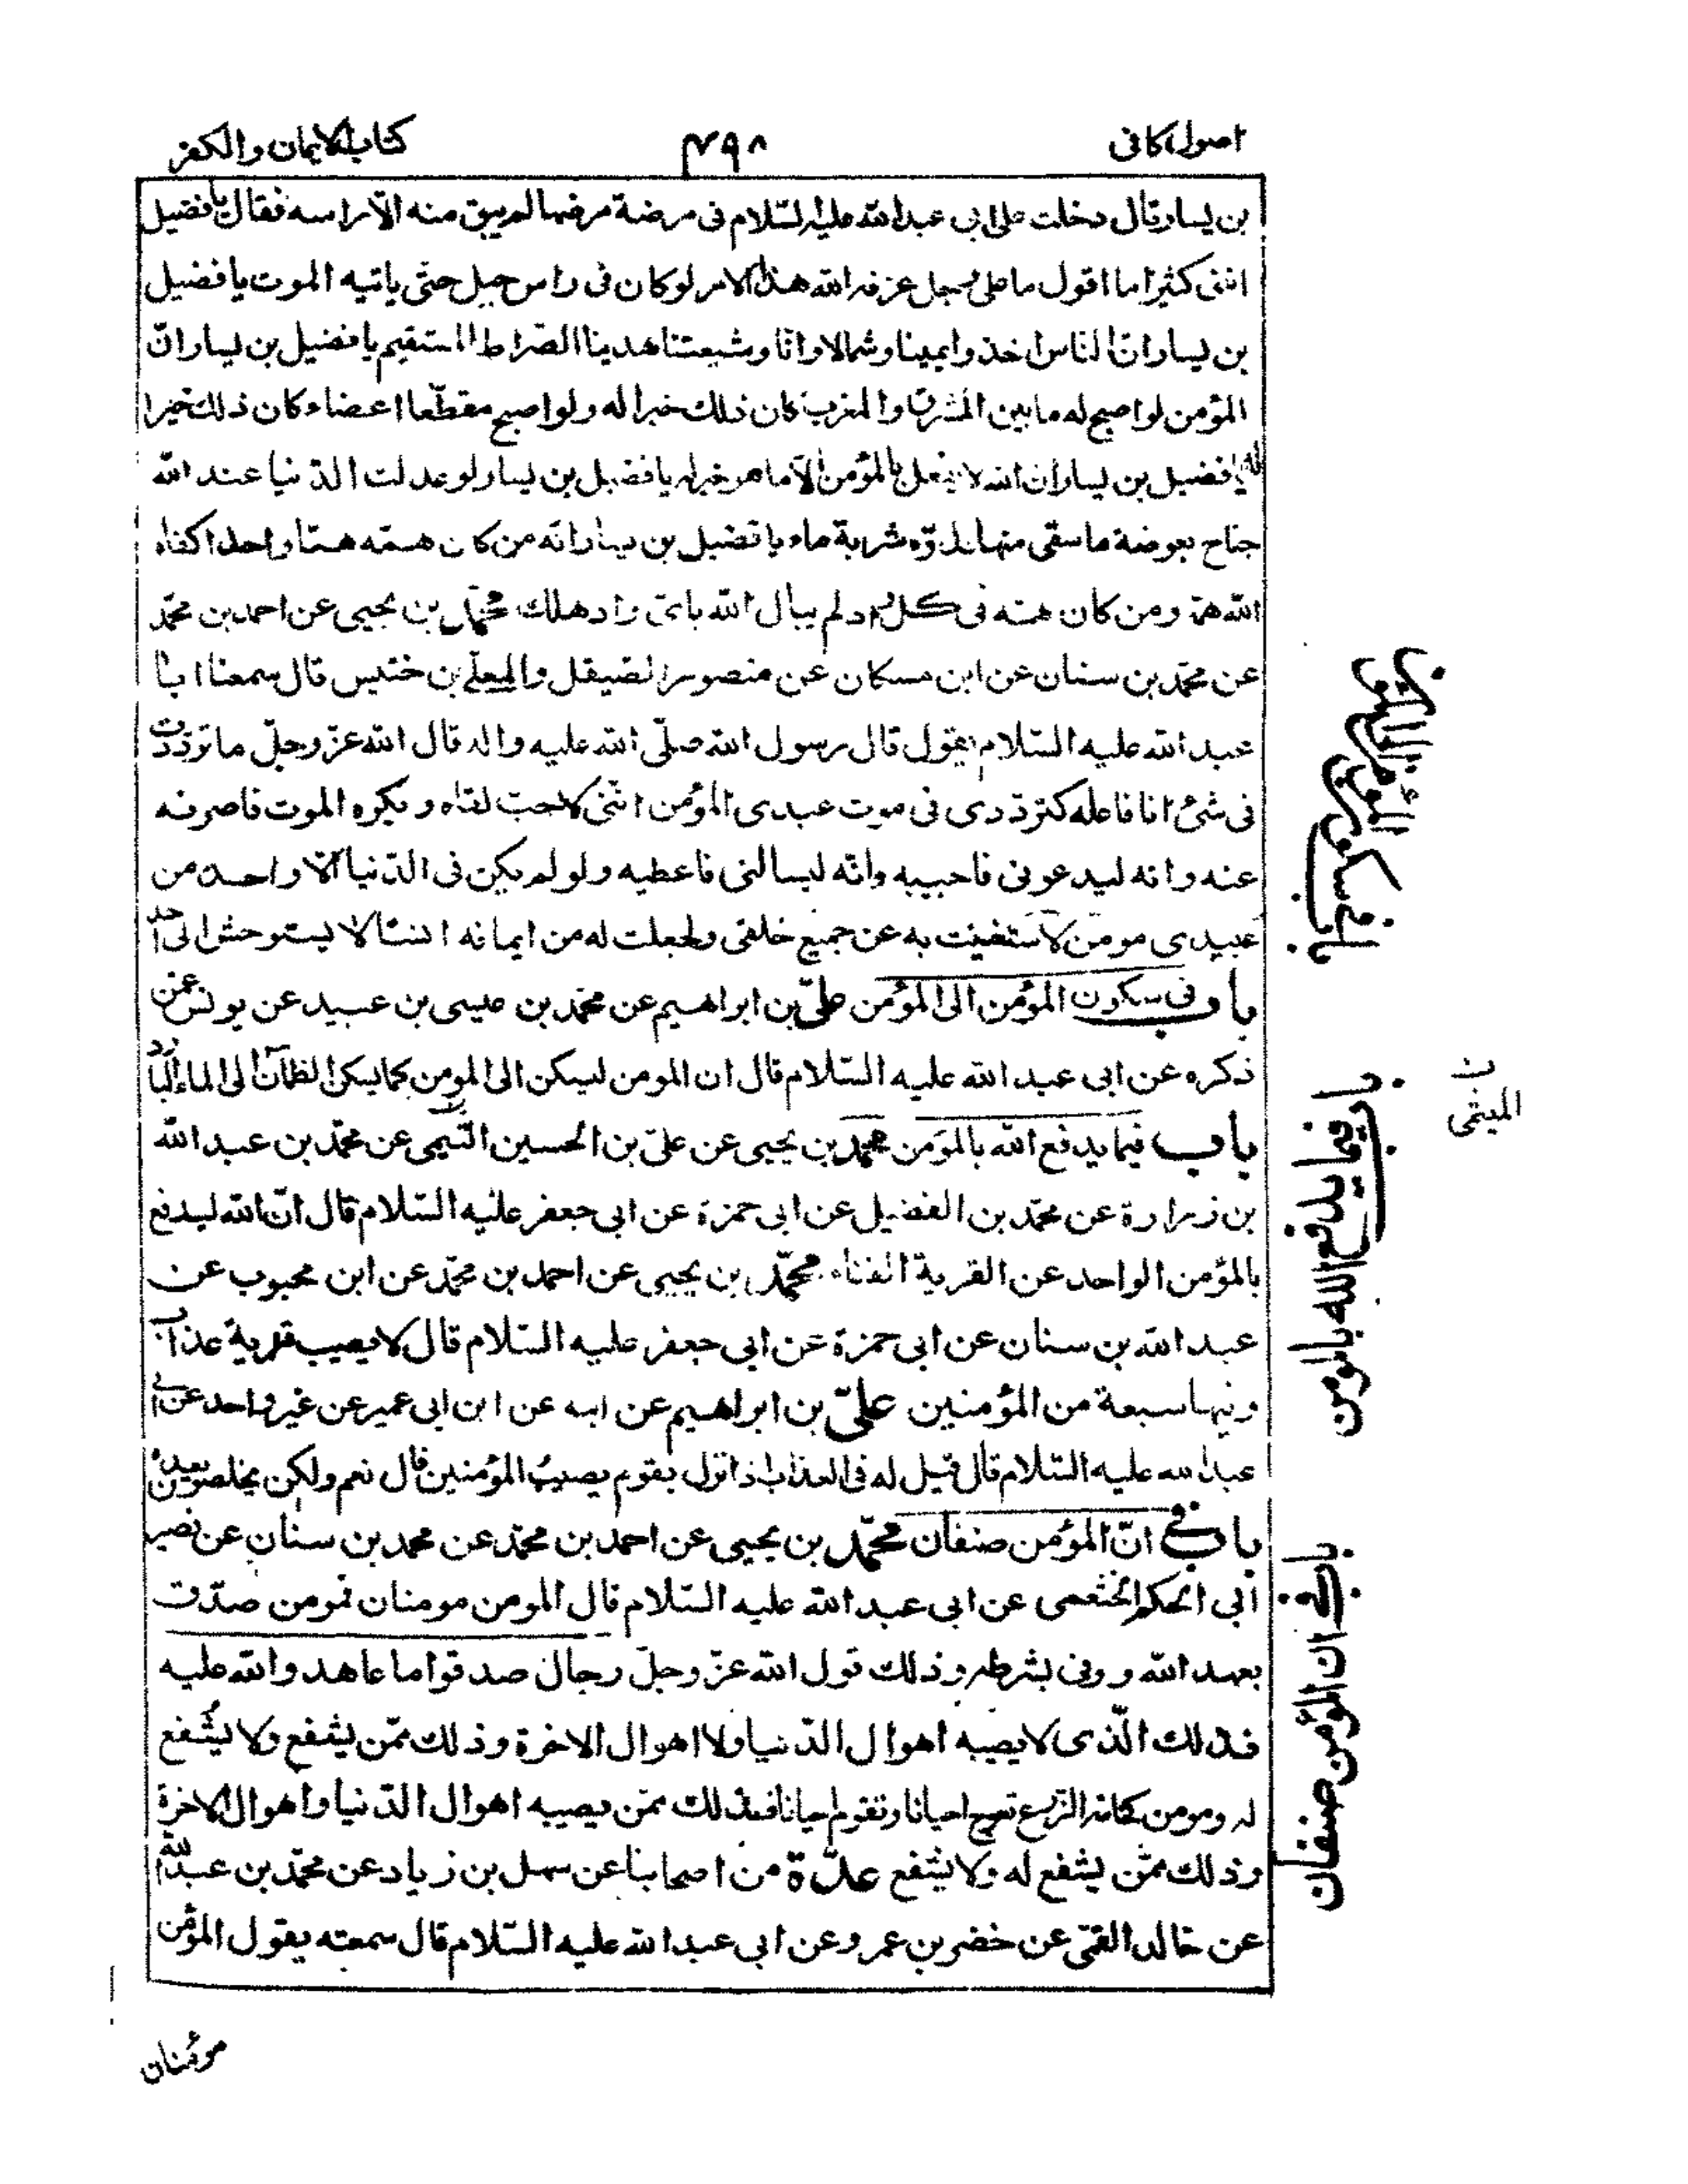 اصول كافى
٤٩٨
كتاب الايمان والكفر
بن يسار قال دخلت على ابى عبد الله عليه السّلام فى مرضة مرضها لم يبق منه الّا راسه فقال يا فضيل
اننى كثيرا ما اقول ما على رجل عرفه الله هذا الامر لو كان فى راس جبل حتّى ياتيه الموت يا فضيل
بن يسار انّ الناس اخذوا يمينا وشمالا وانّا وشيعتنا هدينا الصّراط المستقيم يا فضيل بن يسار انّ
المؤمن لو اصبح له ما بين المشرق والمغرب كان ذلك خيرا له ولو اصبح مقطّعا اعضاءه كان ذلك خيرا
له يا فضيل بن يسار ان الله لا يفعل بالمؤمن الّا ما هو خير له يا فضيل بن يسار لو عدلت الدّنيا عند الله
جناح بعوضة ما سقى منها عدوّه شربة ماء يا فضيل بن يسار انّه من كان همّه همّا واحدا كفاه
الله همّه ومن كان همّه فى كلّ واد لم يبال الله باىّ واد هلك محمّد بن يحيى عن احمد بن محمّد
عن محمّد بن سنان عن ابن مسكان عن منصور الصّيقل والمعلّى بن خنيس قال سمعنا ابا
عبد الله عليه السّلام يقول قال رسول الله صلّى الله عليه واله قال الله عزّ وجلّ ما تردّدت
فى شئ انا فاعله كتردّدى فى موت عبدى المؤمن انّنى لاحبّ لقاه ويكره الموت فاصرفه
عنه وانه ليدعونى فاجيبه وانّه ليسالنى فاعطيه ولو لم يكن فى الدّنيا الّا واحد من
عبيدى مومن لاستغنيت به عن جميع خلقى ولجعلت له من ايمانه انسا لا يستوحش الى احد
باب فى سكون المؤمن الى المؤمن علىّ بن ابراهيم عن محمّد بن عيسى بن عبيد عن يونس عمن
ذكره عن ابى عبد الله عليه السّلام قال ان المومن ليسكن الى المومن كما يسكن الظمآن الى الماء البارد
باب فيما يدفع الله بالمؤمن محمّد بن يحيى عن علىّ بن الحسين التّيمى عن محمّد بن عبد الله
بن زرارة عن محمّد بن الفضيل عن ابى حمزة عن ابى جعفر عليه السّلام قال انّ الله ليدفع
بالمؤمن الواحد عن القرية الفناء محمّد بن يحيى عن احمد بن محمّد عن ابن محبوب عن
عبد الله بن سنان عن ابى حمزة عن ابى جعفر عليه السّلام قال لا يصيب قرية عذاب
وفيها سبعة من المؤمنين علىّ بن ابراهيم عن ابيه عن ابن ابى عمير عن غير واحد عن ابى
عبد الله عليه السّلام قال قيل له فى العذاب اذا نزل بقوم يصيب المؤمنين قال نعم ولكن يخلصون بعده
باب فى انّ المؤمن صنفان محمّد بن يحيى عن احمد بن محمّد عن محمد بن سنان عن نصير
ابى الحكم الخثعمى عن ابى عبد الله عليه السّلام قال المومن مومنان فمومن صدّق
بعهد الله ووفى بشرطه وذلك قول الله عزّ وجلّ رجال صدقوا ما عاهدوا الله عليه
فذلك الّذى لا يصيبه اهوال الدّنيا ولا اهوال الاخرة وذلك ممّن يشفع ولا يشفع
له ومومن كخامة الزّرع تعوج احيانا وتقوم احيانا فذلك ممّن يصيبه اهوال الدّنيا واهوال الاخرة
وذلك ممّن يشفع له ولا يشفع عدّة من اصحابنا عن سهل بن زياد عن محمّد بن عبد الله
عن خالد القمّى عن خضر بن عمرو عن ابى عبد الله عليه السّلام قال سمعته يقول المؤمن
باب فى سكون المؤمن الى المؤمن
باب فيما يدفع الله بالمومن
ب
الميثمى
باب فى ان المؤمن صنفان
مؤمنان